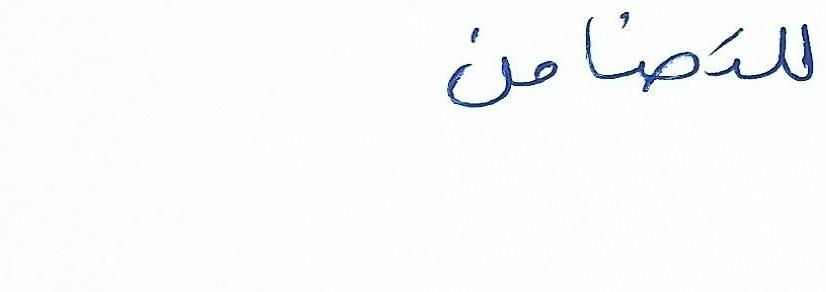 للتضامن